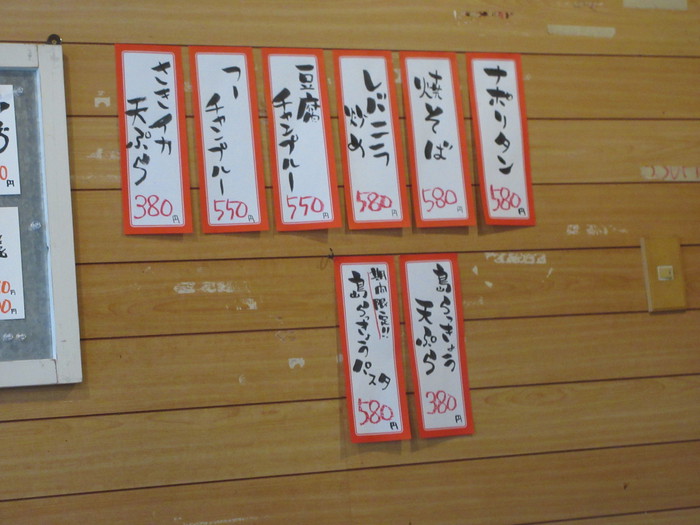 ナポリタン
580円
焼そば
580円
レバニラ
炒め
580円
豆腐
チャンプルー
550円
フー
チャンプルー
550円
さきイカ
天ぷら
380円
島らっきょう
天ぷら
380円
期間限定!!
島らっきょうパスタ
580円
円
円